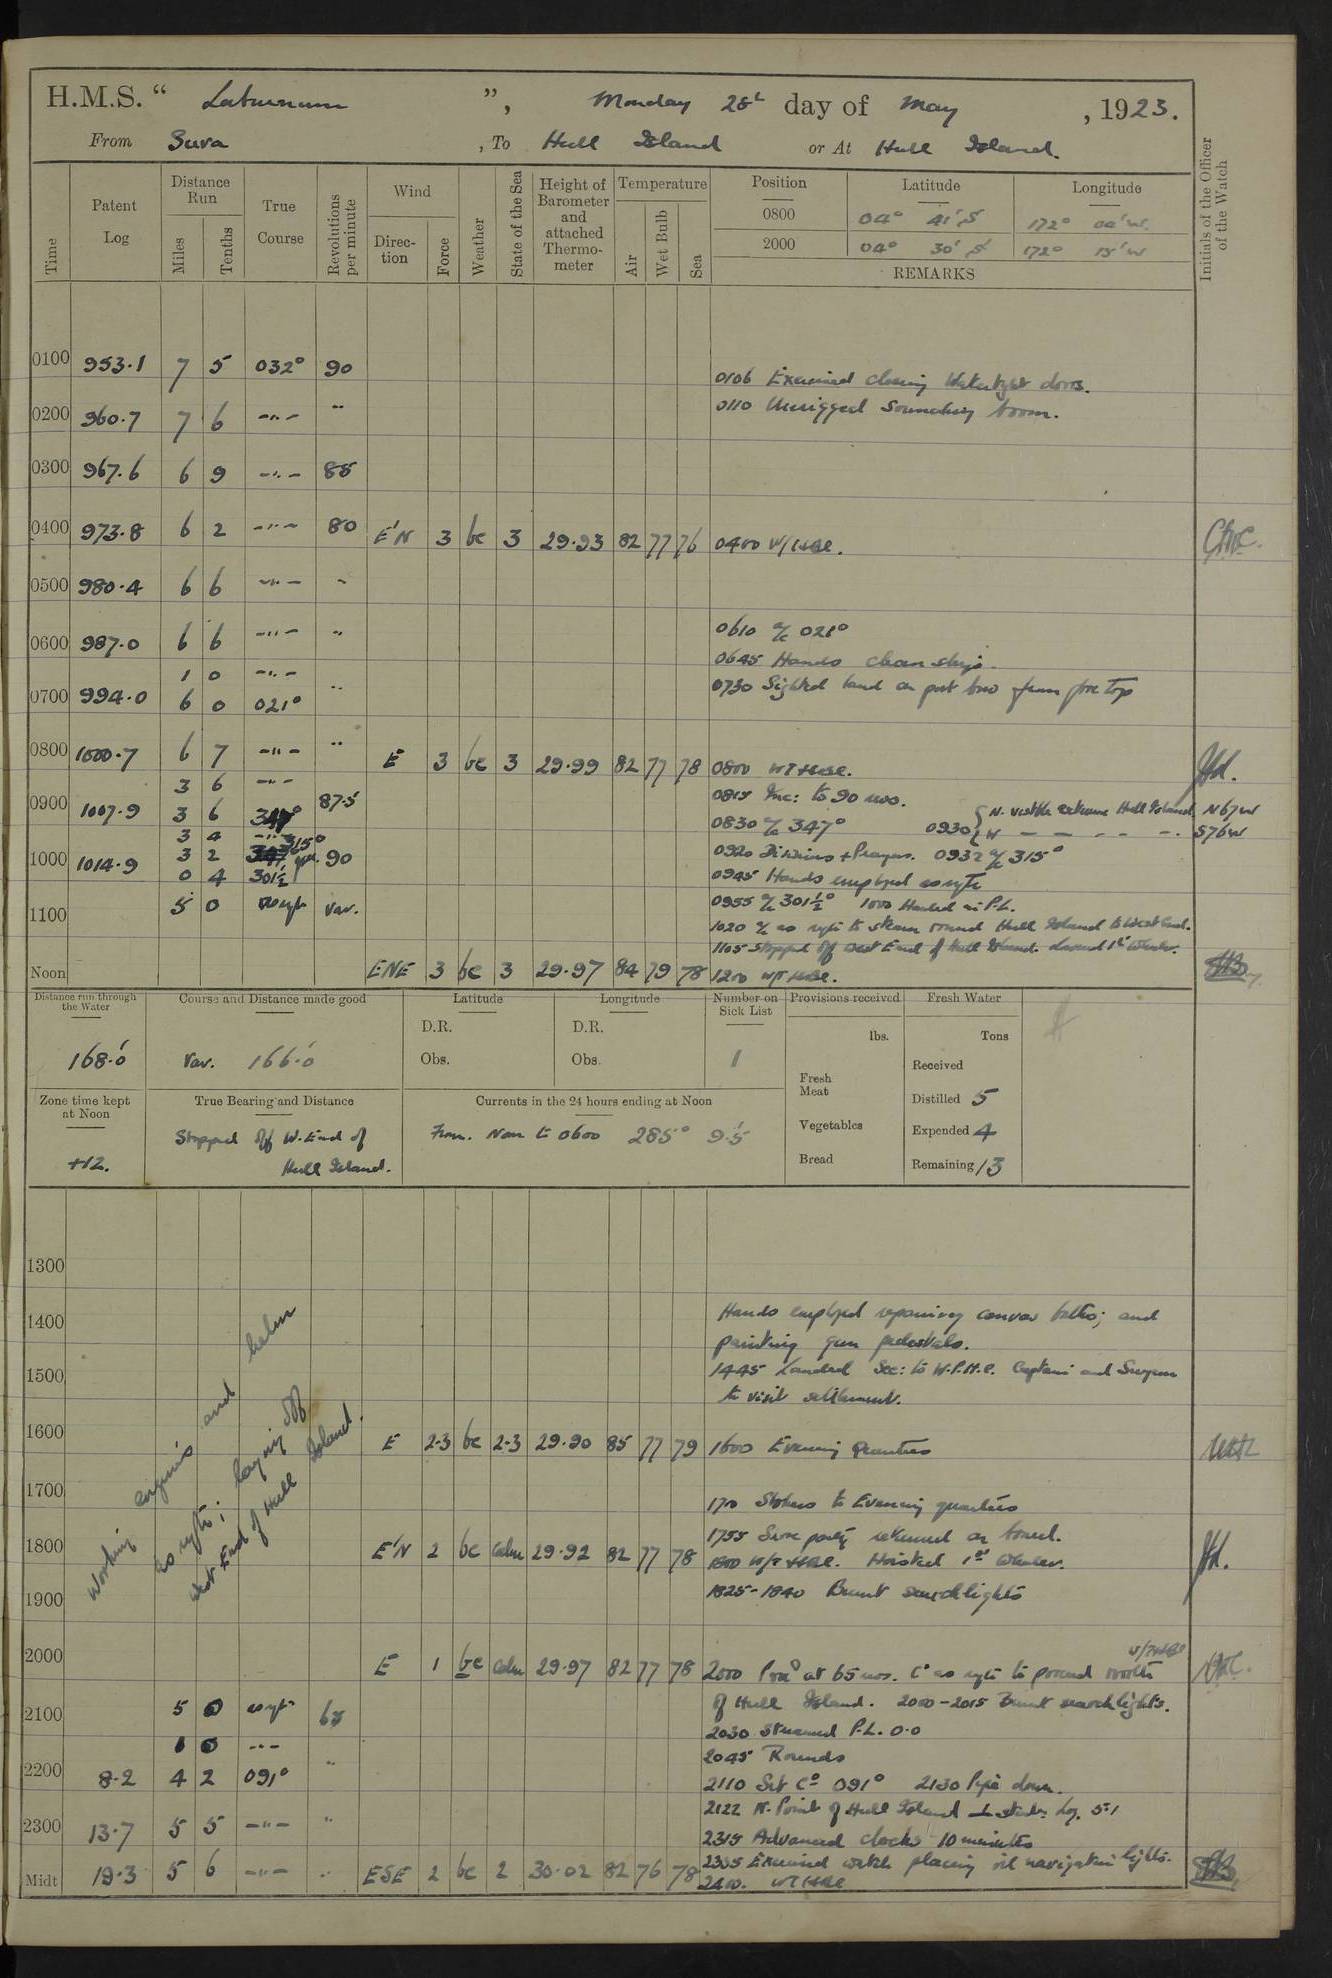 H.M.S. “ Laburnum ”, Monday 28th day of May , 1923.
From Suva , To Hull Island or At Hull Island.
Time
Patent Log
Distance Run
Miles
Tenths
True Course
Revolutions per minute
Wind
Direction
Force
Weather
State of the Sea
Height of Barometer and attached Thermometer
Temperature
Air
Wet Bulb
Sea
Position Latitude Longitude
0800 04° 41' S 172° 00' W.
2000 04° 30' S 172° 15' W
REMARKS
Initials of the Officer of the Watch
0100 953.1 7 5 032° 90
0106 Examined closing Watertight doors.
0110 Unrigged Sounding boom.
0200 960.7 7 6 -"- "
0300 967.6 6 9 -"- 85
0400 973.8 6 2 -"- 80 E'N 3 bc 3 29.93 82 77 76 0400
0500 980.4 6 6 -"- "
0600 987.0 6 6 -"- "
0610 a/c 021°
0645 Hands clean ship.
1 0 -"-
0700 994.0 6 0 021° "
0730 Sighted land on port bow from fore top
0800 1000.7 6 7 -"- " E 3 bc 3 29.99 82 77 78 0800
3 6 -"-
0815 Inc: to 90 revs.
0900 1007.9 3 6 347° 87.5
0830 a/c 347° 0930 { N. visible extreme Hull Island N67W
W - - - - - S76W
3 4 -"-
1000 1014.9 3 2 315° 90
0920 Divisions + Prayers. 0932 a/c 315°
0 4 301½
0945 Hands employed as reqte
0955 a/c 301½° 1000 Hauled in P.L.
1100 5 0 as reqte Var.
1020 a/c as reqte to steam round Hull Island to West End.
1105 Stopped off West End of Hull Island. Lowered 1st Whaler.
Noon ENE 3 bc 3 29.97 84 79 78 1200
Distance run through the Water
168.0
Course and Distance made good
Var. 166.0
Latitude
D.R.
Obs.
Longitude
D.R.
Obs.
Number on Sick List
1
Provisions received
lbs.
Fresh Meat
Vegetables
Bread
Fresh Water
Tons
Received
Distilled 5
Expended 4
Remaining 13
Zone time kept at Noon
+12.
True Bearing and Distance
Stopped off W. End of Hull Island.
Currents in the 24 hours ending at Noon
From Noon to 0600 285° 9.5
1300
1400
Hands employed repairing canvas baths; and
painting gun pedestals.
1500
1445 Landed Sec: to W.P.H.C. Captain and Surgeon
to visit settlement.
Working engines and helm
as reqte; laying off
West End of Hull Island.
1600 E 2-3 bc 2-3 29.90 85 77 79 1600 Evening Quarters
1700
1710 Stokers to Evening quarters
1755 Shore party returned on board.
1800 E'N 2 bc Calm 29.92 82 77 78 1800 Hoisted 1st Whaler.
1825-1840 Burnt searchlights
1900
2000 E 1 bc Calm 29.97 82 77 78 2000 Procd at 65 revs. Co as reqte to proceed north
of Hull Island. 2000-2015 Burnt searchlights.
2100 5 0 as reqte 65
2030 Streamed P.L. 0.0
1 0 -"-
2045 Rounds
2200 8.2 4 2 091° "
2110 Set Co 091° 2130 Pipe down.
2122 N. Point of Hull Island Log. 5.1
2300 13.7 5 5 -"- "
2315 Advanced clocks 10 minutes
2335 Examined watch placing oil navigation lights.
Midt 19.3 5 6 -"- " ESE 2 bc 2 30.02 82 76 78 2400.